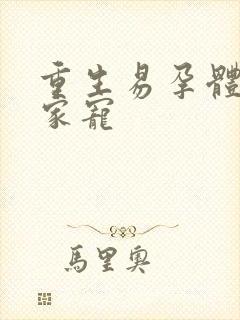 重生易孕體
家寵
馬里奧